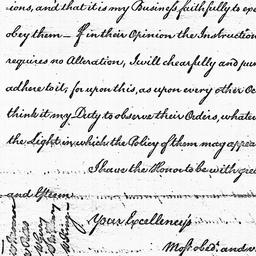 ions, and that it is my Business faithfully to
obey them — If in their Opinion the Instruction
requires no Alteration, I will chearfully and
adhere to it, for upon this, as upon every other
think it my Duty to observe their Orders,
the Light in which the Policy of them may
I have the Honor to be with
and Esteem
Your Excellency's
Most obedt. and